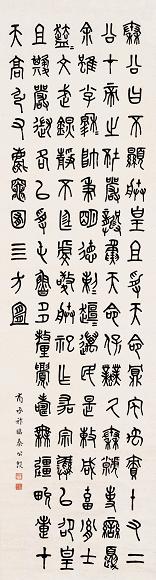 秦公曰不顯朕皇且受天命鼏宅禹責十又二
公才帝之坏嚴龏夤天命保業氒秦虩事蠻夏
余雖小子穆帥秉明德剌趄邁民是敕咸畜胤士
文武鎮靜不廷虔敬朕祀乍宗彝以卲皇
且其嚴各以受屯魯多釐眉壽無疆畯疐才
天高弘又慶竈囿亖方宜
商承祚臨秦公𣪘